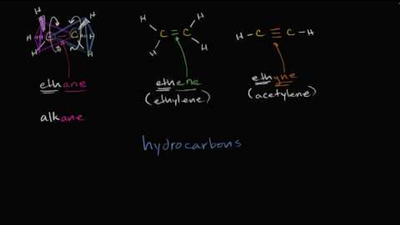 H H H H H H
H C C H C=C H-C≡C-H
H H H H
ethane ethene ethyne
(ethylene) (acetylene)
alkane
hydrocarbons